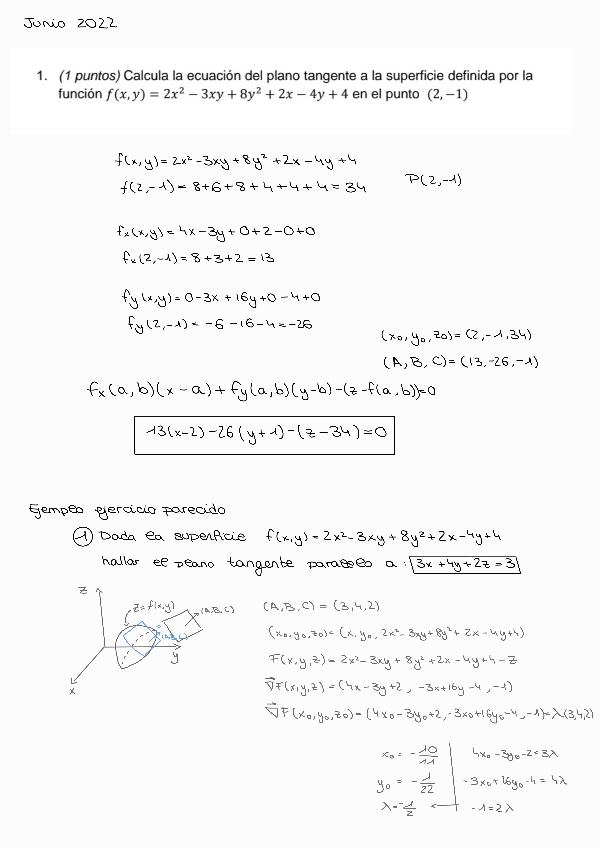 Junio 2022
1. (1 puntos) Calcula la ecuación del plano tangente a la superficie definida por la
función f(x,y) = 2x² − 3xy + 8y² + 2x − 4y + 4 en el punto (2,−1)
f(x,y) = 2x² - 3xy + 8y² + 2x - 4y + 4
f(2,-1) = 8+6+8+4+4+4 = 34 P(2,-1)
fx(x,y) = 4x - 3y + 0 + 2 - 0 + 0
fx(2,-1) = 8+3+2 = 13
fy(x,y) = 0 - 3x + 16y + 0 - 4 + 0
fy(2,-1) = -6 - 16 - 4 = -26
(x₀, y₀, z₀) = (2,-1,34)
(A, B, C) = (13,-26,-1)
fx(a,b)(x-a) + fy(a,b)(y-b) - (z - f(a,b)) = 0
13(x-2) - 26(y+1) - (z-34) = 0
Ejemplo ejercicio parecido
1 Dada la superficie f(x,y) = 2x² - 3xy + 8y² + 2x - 4y + 4
hallar el plano tangente paralelo a: 3x + 4y + 2z = 3
z
z = f(x,y)
(A,B,C)
y
x
(A,B,C) = (3,4,2)
(x₀,y₀,z₀) = (x, y₀, 2x² - 3xy + 8y² + 2x - 4y + 4)
F(x,y,z) = 2x² - 3xy + 8y² + 2x - 4y + 4 - z
∇F(x,y,z) = (4x - 3y + 2, -3x + 16y - 4, -1)
∇F(x₀,y₀,z₀) = (4x₀ - 3y₀ + 2, -3x₀ + 16y₀ - 4, -1) = λ(3,4,2)
x₀ = -10/11 4x₀ - 3y₀ - 2 = 3λ
y₀ = -1/22 -3x₀ + 16y₀ - 4 = 4λ
λ = -1/2 ← -1 = 2λ